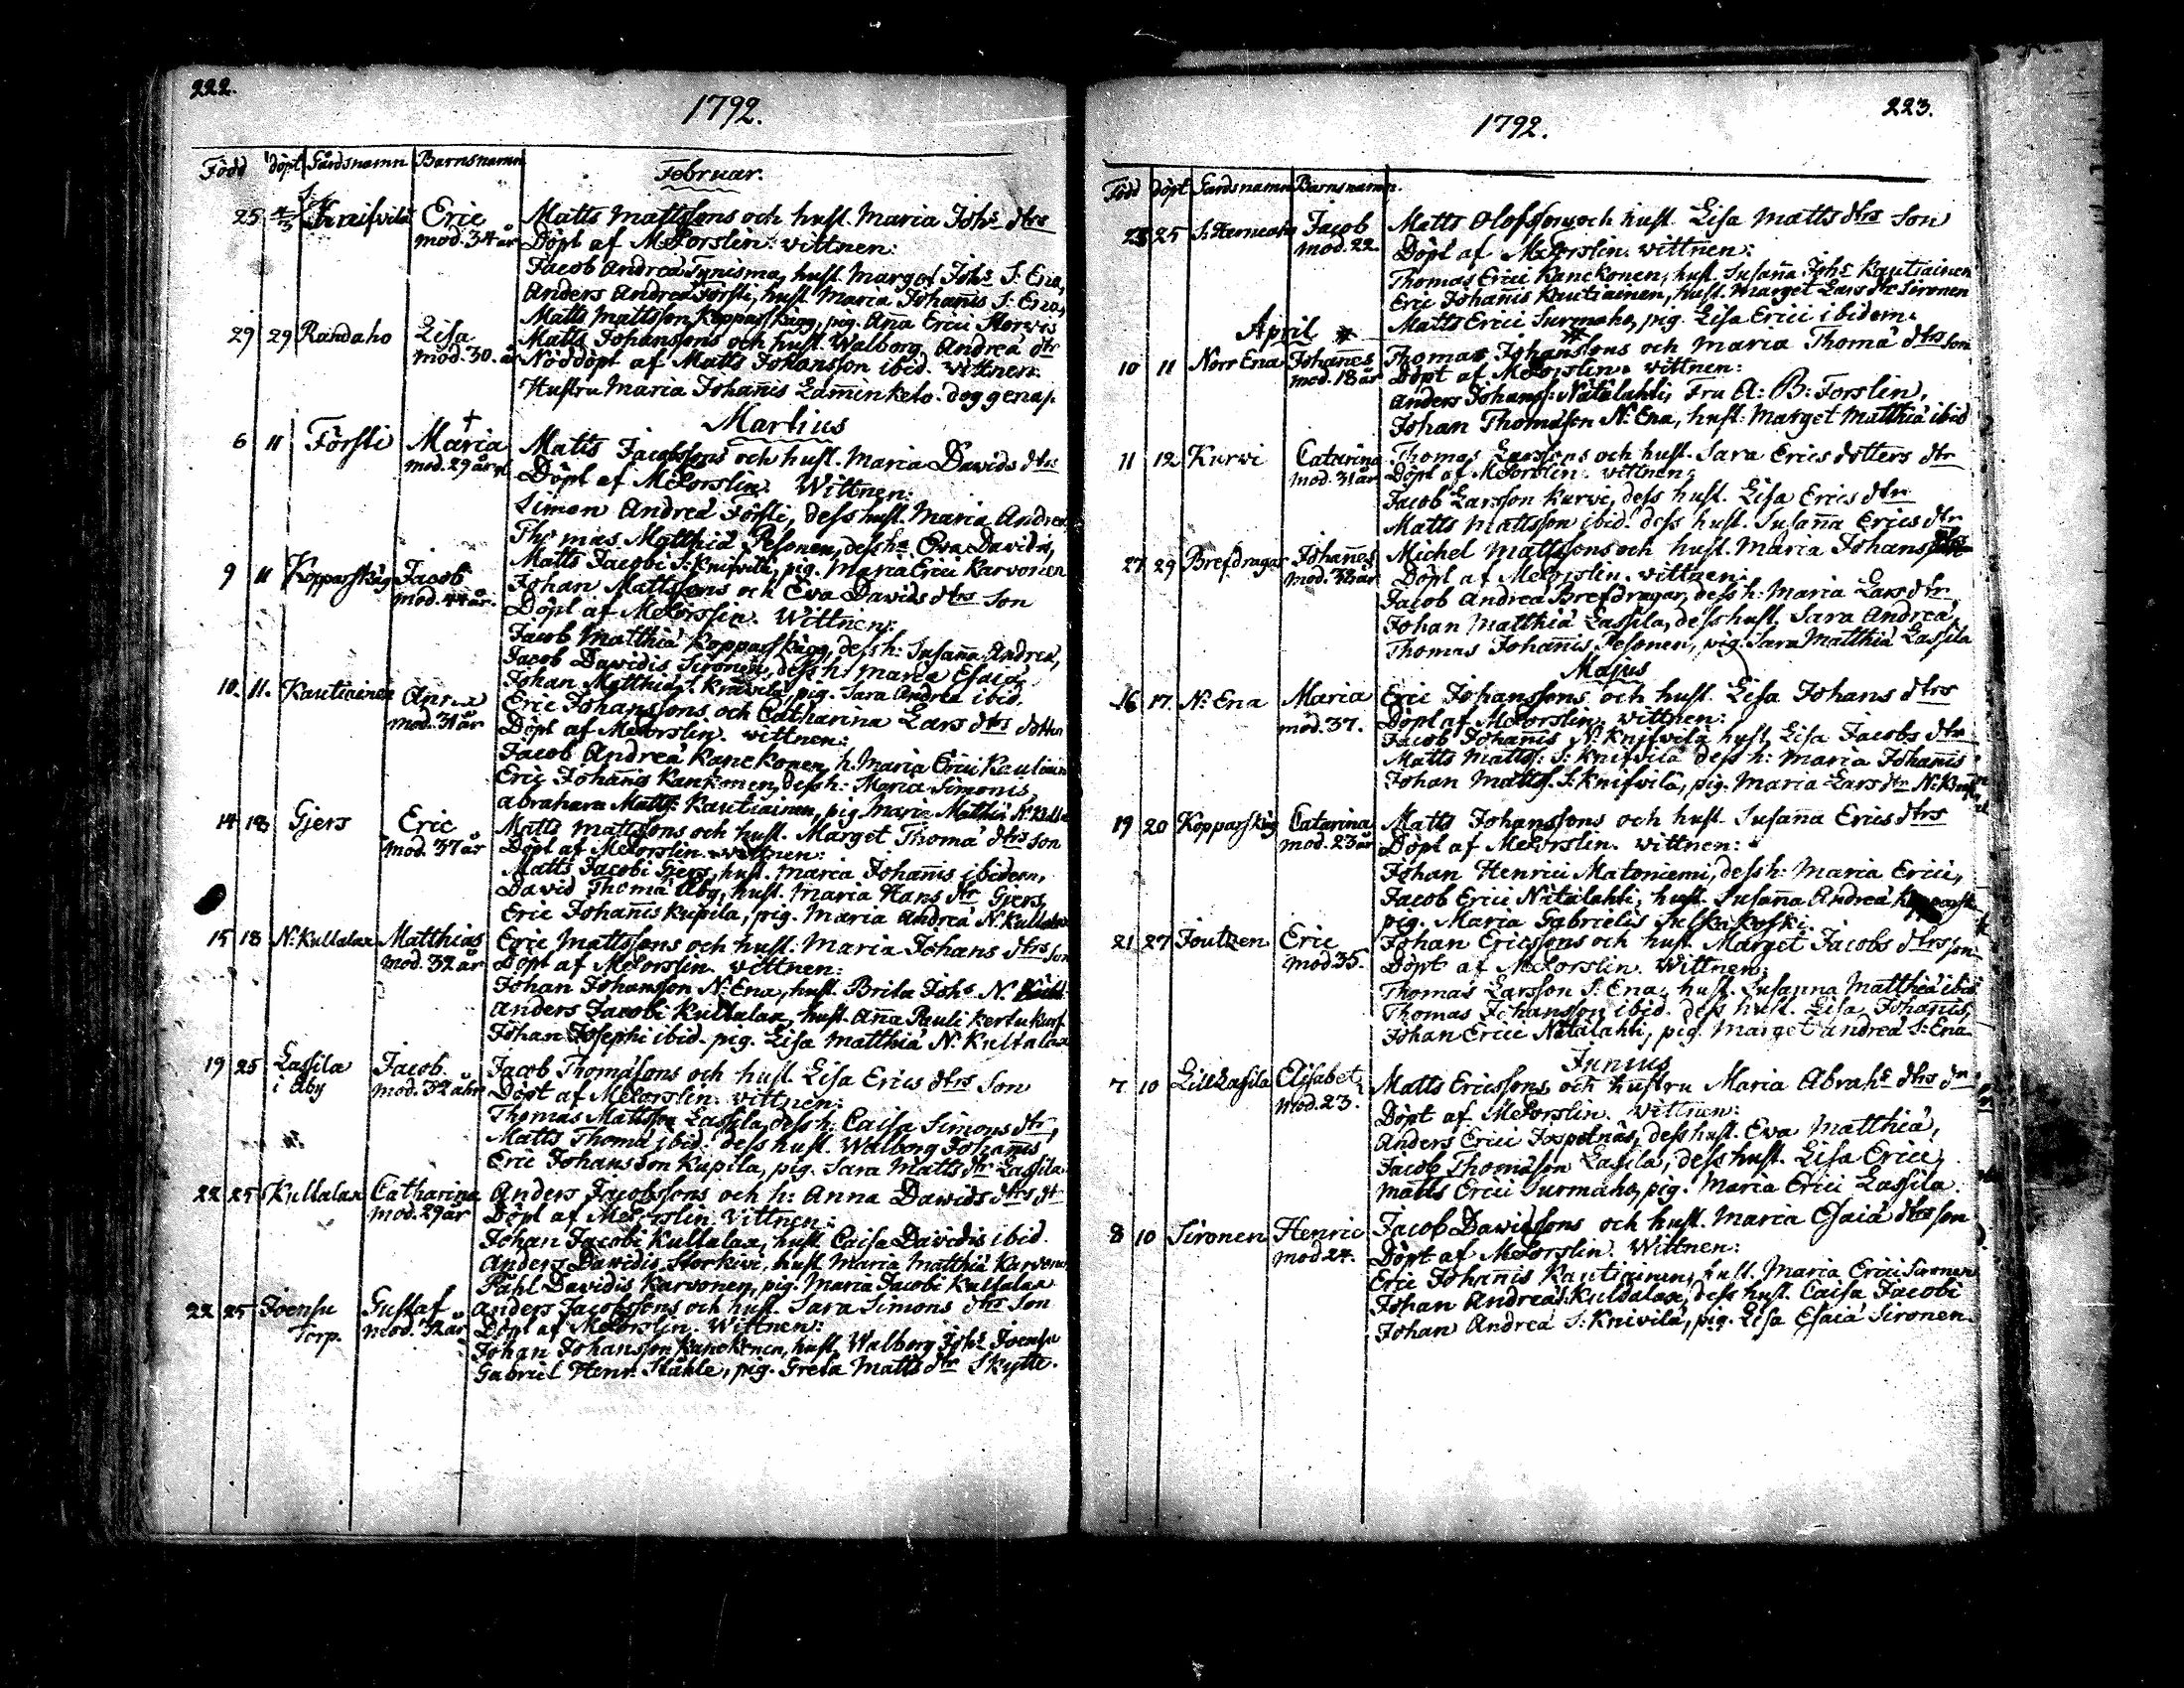 222.
1792.
Född döpt Gårdsnamn Barnsnamn
Februar.
25 4/3 S: Knifvilä Eric Matts Mattssons och hust. Maria Johs dtrs
mod. 34 år Döpt af MForslin. vittnen:
Jacob Andreä Tynismä, hust. Marget Johs S: Ena,
Anders Andreä Försti, hust. Maria Johañis S: Ena,
Matts Mattsson Kopparskägg, pig. Aña Erici
29 29 Randaho Lisa Matts Johanssons och hust. Walborg Andreä dtr
mod. 30. år Nöddöpt af Matts Johansson ibid. vittnen:
Hustru Maria Johañis Lamminketo. dog genast.
Martius
6 11 Försti + Maria Matts Jacobssons och hust. Maria Davids dtrs
mod. 29 år gl Döpt af MForslin. Wittnen:
Simon Andreä Försti, dess hust. Maria Andreä
Thomas Matthiä Pesonen, dess ha Eva Davidis,
Matts Jacobi S: Knifvilä, pig. Maria Erici Karvonen
9 11 Kopparskäg Jacob Johan Mattssons och Eva Davids dtrs son
mod. 44 år. Döpt af MForslin. Wittnen:
Jacob Matthiä Kopparskägg, dess h: Susaña Andreä,
Jacob Davidis Sironen, dess h: Maria Esaiä,
Johan Matthiä S. Knivilä, pig. Sara Andreä ibid.
10 11. Kautiainen Anna Eric Johanssons och Catharina Lars dtrs dotter
mod. 31 år Döpt af MForslin. vittnen:
Jacob Andreä Kanckonen, h. Maria Erici Kautiain
Eric Johañis Kankonen, dess h: Maria Simonis,
Abraham Matts: Kautiainen, pig. Maria Matthiä
14 18 Gjers Eric Matts Mattssons och hust. Marget Thomä dtrs son
mod. 37 år Döpt af MForslin. vittnen:
Matts Jacobi Gjers, hust. Maria Johañis ibidem,
David Thomä Åby, hust. Maria Hans dtr Gjers,
Eric Johañis Kupila, pig. Maria Andreä N. Kullalax
15 18 N: Kullalax Matthias Eric Mattssons och hust. Maria Johans dtrs son
mod. 32 år Döpt af MForslin. vittnen:
Johan Johansson N: Ena, hust. Brita Johs N.
Anders Jacobi Kullalax, hust. Aña Pauli
Johan Josephi ibid. pig. Lisa Matthiä N. Kullalax
19 25 Lassila Jacob Jacob Thomäsons och hust. Lisa Erics dtrs son
i Åby mod. 32 åhr Döpt af MForslin. vittnen:
Thomas Mattsson Lassila, dess h: Caisa Simons dtr,
Matts Thomä ibid. dess hust. Walborg Johañis
Eric Johansson Kupila, pig. Sara Matts dtr Lassila
22 25 Kullalax Catharina Anders Jacobssons och h: Anna Davids dtrs dtr
mod. 29 år Döpt af MForslin. vittnen:
Johan Jacobi Kullalax, hust. Caisa Davidis ibid.
Anders Davidis Storkivi, hust. Maria Matthiä Karvonen
Påhl Davidis Karvonen, pig. Maria Jacobi Kullalax
22 25 Joensu Gustaf Anders Jacobssons och hust. Sara Simons dtrs son
Torp. mod. 32 år Döpt af MForslin. Wittnen:
Johan Johansson Kanckonen, hust. Walborg Johs Joensu
Gabriel Henr. Ståhle, pig. Greta Matts dtr Skytte.
223.
1792.
Född Döpt Gårdsnamn Barnsnamn.
23 25 S: Jacob Matts Olofssons och hust. Lisa Matts dtrs son
mod. 22. Döpt af MForslin. vittnen:
Thomas Erici Kanckonen, hust. Susaña Johs Kautiainen
Eric Johañis Kautiainen, hust. Marget Lars dtr Sironen
Matts Erici Surmaho, pig. Lisa Erici ibidem.
April
10 11 Norr Ena Johañes Thomas Johanssons och Maria Thomä dtrs son
mod. 18 år Döpt af MForslin. vittnen:
Anders Johanss: Nätälahti, Fru A: B: Forslin,
Johan Thomäson N: Ena, hust. Marget Matthiä ibid
11 12 Kurvi Catarina Thomas Larssons och hust. Sara Erics dotters dtr
mod. 31 år Döpt af MForslin. vittnen:
Jacob Larsson Kurvi, dess hust. Lisa Erics dtr
Matts Mattsson ibid. dess hust. Susaña Erics dtr
27 29 Brefdragar Johañes Michel Mattssons och hust. Maria Johans
mod. 32 år Döpt af MForslin. vittnen:
Jacob Andreä Brefdragar, dess h: Maria Lars dtr
Johan Matthiä Lassila, dess hust. Sara Andreä,
Thomas Johañis Pesonen, pig. Sara Matthiä Lassila
Majus
16 17. N: Ena Maria Eric Johanssons och hust. Lisa Johans dtrs
mod. 37. Döpt af MForslin. vittnen:
Jacob Johañis N: Knifvilä hust. Lisa Jacobs dtr
Matts Matts: S: Knifvilä dess h: Maria Johañis
Johan Matts. S. Knifvilä, pig. Maria Lars dtr
19 20 Kopparskäg Catarina Matts Johanssons och hust. Susaña Erics dtrs
mod. 23 år Döpt af MForslin. vittnen:
Johan Henrici Matoniemi, dess h: Maria Erici,
Jacob Erici Nätälahti, hust. Susaña Andreä
pig. Maria Gabrielis
21 27 Joutzen Eric Johan Ericssons och hust. Marget Jacobs dtrs son
mod 35. Döpt af MForslin. Wittnen:
Thomas Larsson S: Ena, hust. Susanna Matthiä ibid
Thomas Johansson ibid. dess hust. Lisa Johañis,
Johan Erici Nätälahti, pig. Marget Andreä S: Ena
Junius
7 10 Lill Lassila Elisabet Matts Ericssons och hustru Maria Abrahs dtrs dtr
mod. 23. Döpt af MForslin. vittnen:
Anders Erici dess hust. Eva Matthiä,
Jacob Thomäson Lassila, dess hust. Lisa Erici,
Matts Erici Surmaho, pig. Maria Erici Lassila.
8 10 Sironen Henric Jacob Davidssons och hust. Maria Esaiä dtrs son
mod 24. Döpt af MForslin. Wittnen:
Eric Johañis Kautiainen, hust. Maria Erici Sironen
Johan Andreä S. Kullalax, dess hust. Caisa Jacobi
Johan Andreä S: Knivilä, pig. Lisa Esaiä Sironen